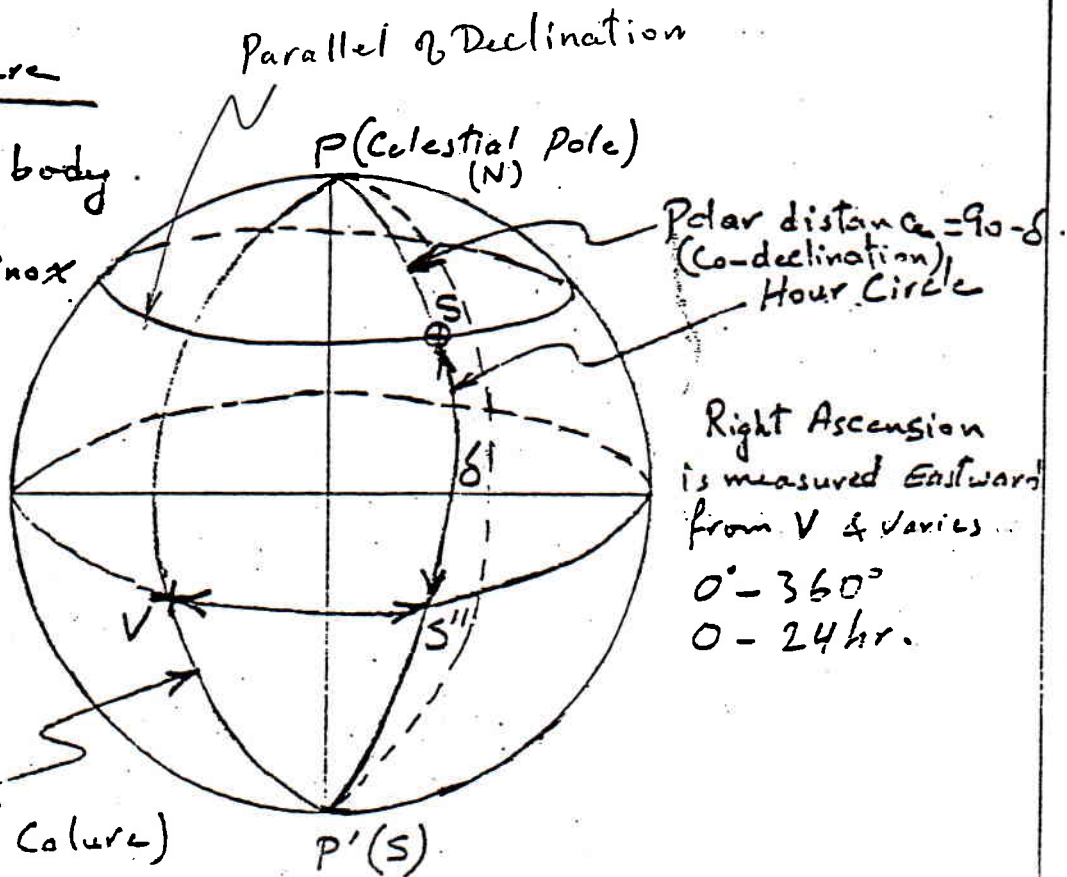 Parallel of Declination
body.
P (Celestial Pole)
(N)
Polar distance = 90-δ.
(Co-declination)
Hour Circle
S
δ
Right Ascension
is measured Eastward
from V & varies
0° - 360°
0 - 24 hr.
V
S"
Colure)
P'(S)